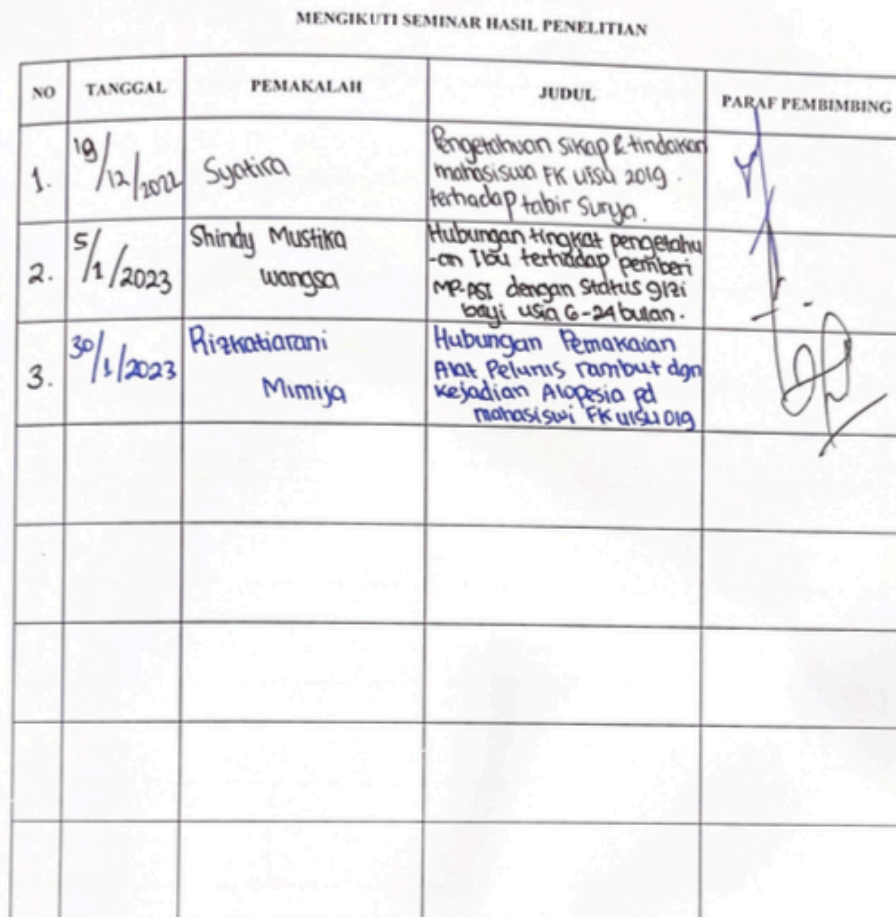 MENGIKUTI SEMINAR HASIL PENELITIAN
NO TANGGAL PEMAKALAH JUDUL PARAF PEMBIMBING
1. 19/12/2022 Syatira Pengetahuan sikap & tindakan
mahasiswa FK UISU 2019.
terhadap tabir surya.
2. 5/1/2023 Shindy Mustika
wangsa
Hubungan tingkat pengetahu
-an Ibu terhadap pemberi
MP-ASI dengan Status gizi
bayi usia 6-24 bulan.
3. 30/1/2023 Rizkatiarani
Mimija
Hubungan Pemakaian
Alat Pelurus rambut dgn
Kejadian Alopesia pd
mahasiswi FK UISU 019